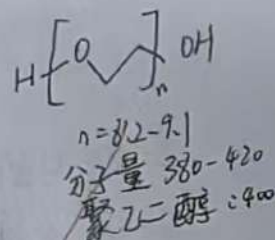 H[O]n OH
n=8.2-9.1
分子量 380-420
聚乙二醇:400